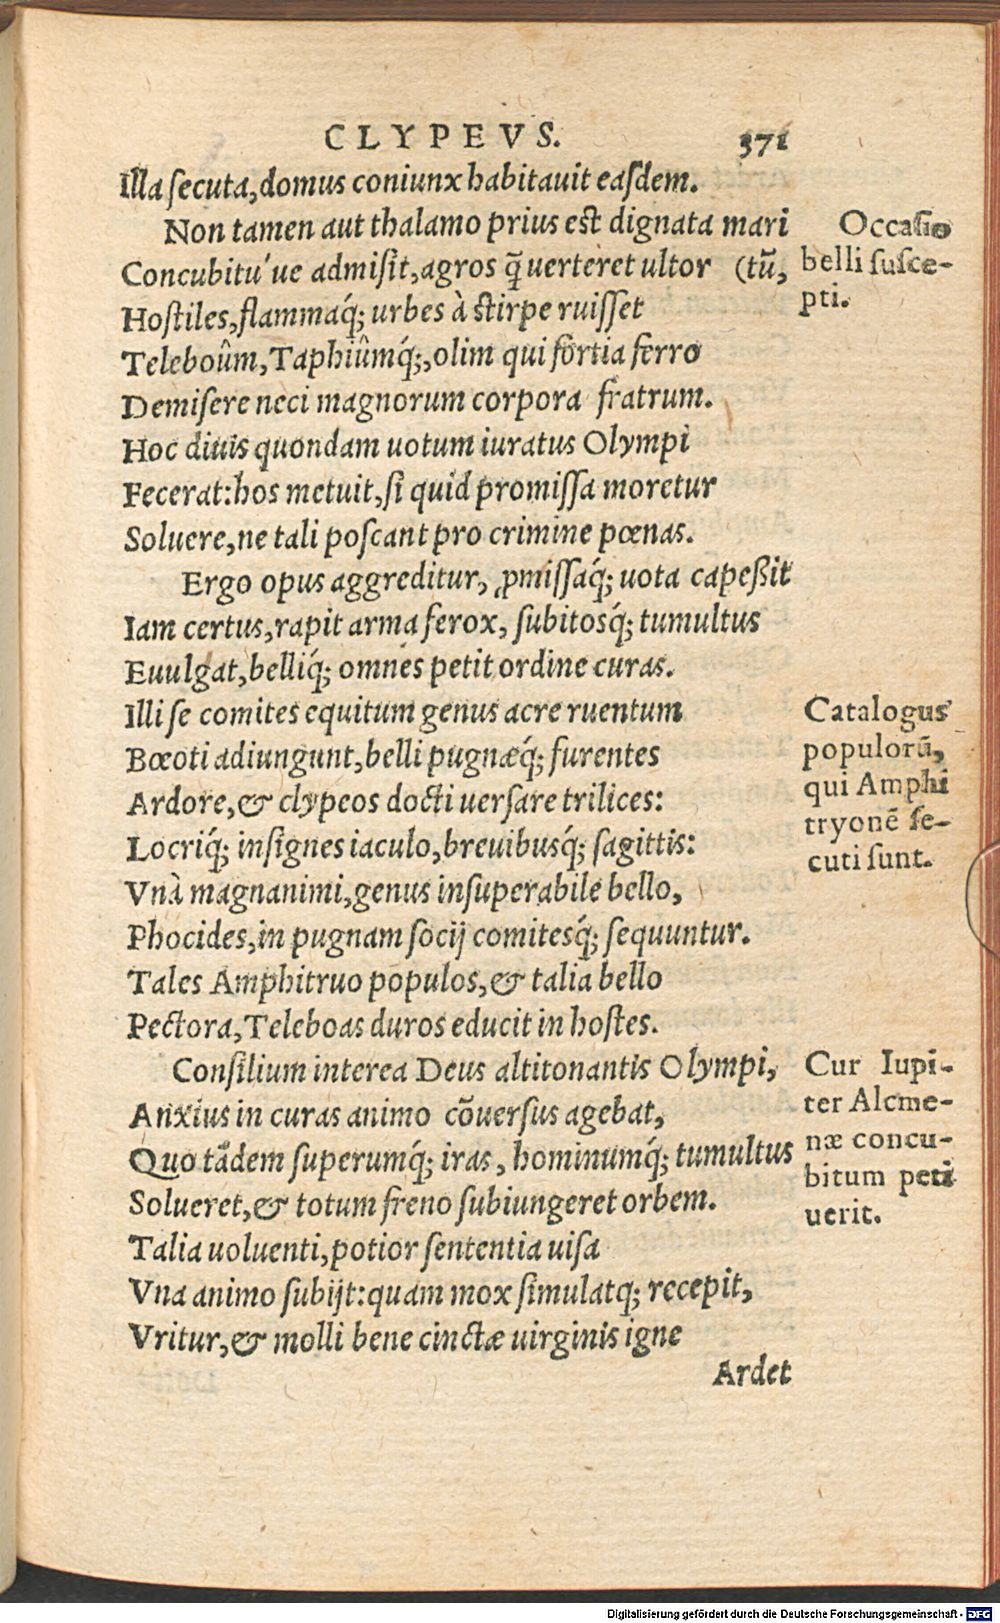 CLYPEVS. 371
Illa secuta, domus coniunx habitauit easdem.
Non tamen aut thalamo prius est dignata mari
Concubitu´ue admisit, agros q̃ uerteret ultor (tũ,
Hostiles, flammaq́; urbes à stirpe ruisset
Teleboûm, Taphiûmq́;, olim qui fortia ferro
Demisere neci magnorum corpora fratrum.
Hoc diuis quondam uotum iuratus Olympi
Fecerat: hos metuit, si quid promissa moretur
Soluere, ne tali poscant pro crimine pœnas.
Ergo opus aggreditur, ꝓmissaq́; uota capeßit
Iam certus, rapit arma ferox, subitosq́; tumultus
Euulgat, belliq́; omnes petit ordine curas.
Illi se comites equitum genus acre ruentum
Bœoti adiungunt, belli pugnæq́; furentes
Ardore, & clypeos docti uersare trilices:
Locriq́; insignes iaculo, breuibusq́; sagittis:
Vnà magnanimi, genus insuperabile bello,
Phocides, in pugnam socij comitesq́; sequuntur.
Tales Amphitruo populos, & talia bello
Pectora, Teleboas duros educit in hostes.
Consilium interea Deus altitonantis Olympi,
Anxius in curas animo cōuersus agebat,
Quo tãdem superumq́; iras, hominumq́; tumultus
Solueret, & totum freno subiungeret orbem.
Talia uoluenti, potior sententia uisa
Vna animo subijt: quam mox simulatq; recepit,
Vritur, & molli bene cinctæ uirginis igne
Ardet
Occasio
belli susce-
pti.
Catalogus
populorũ,
qui Amphi
tryonē se-
cuti sunt.
Cur Iupi-
ter Alcme-
næ concu-
bitum peti
uerit.
Digitalisierung gefördert durch die Deutsche Forschungsgemeinschaft - DFG